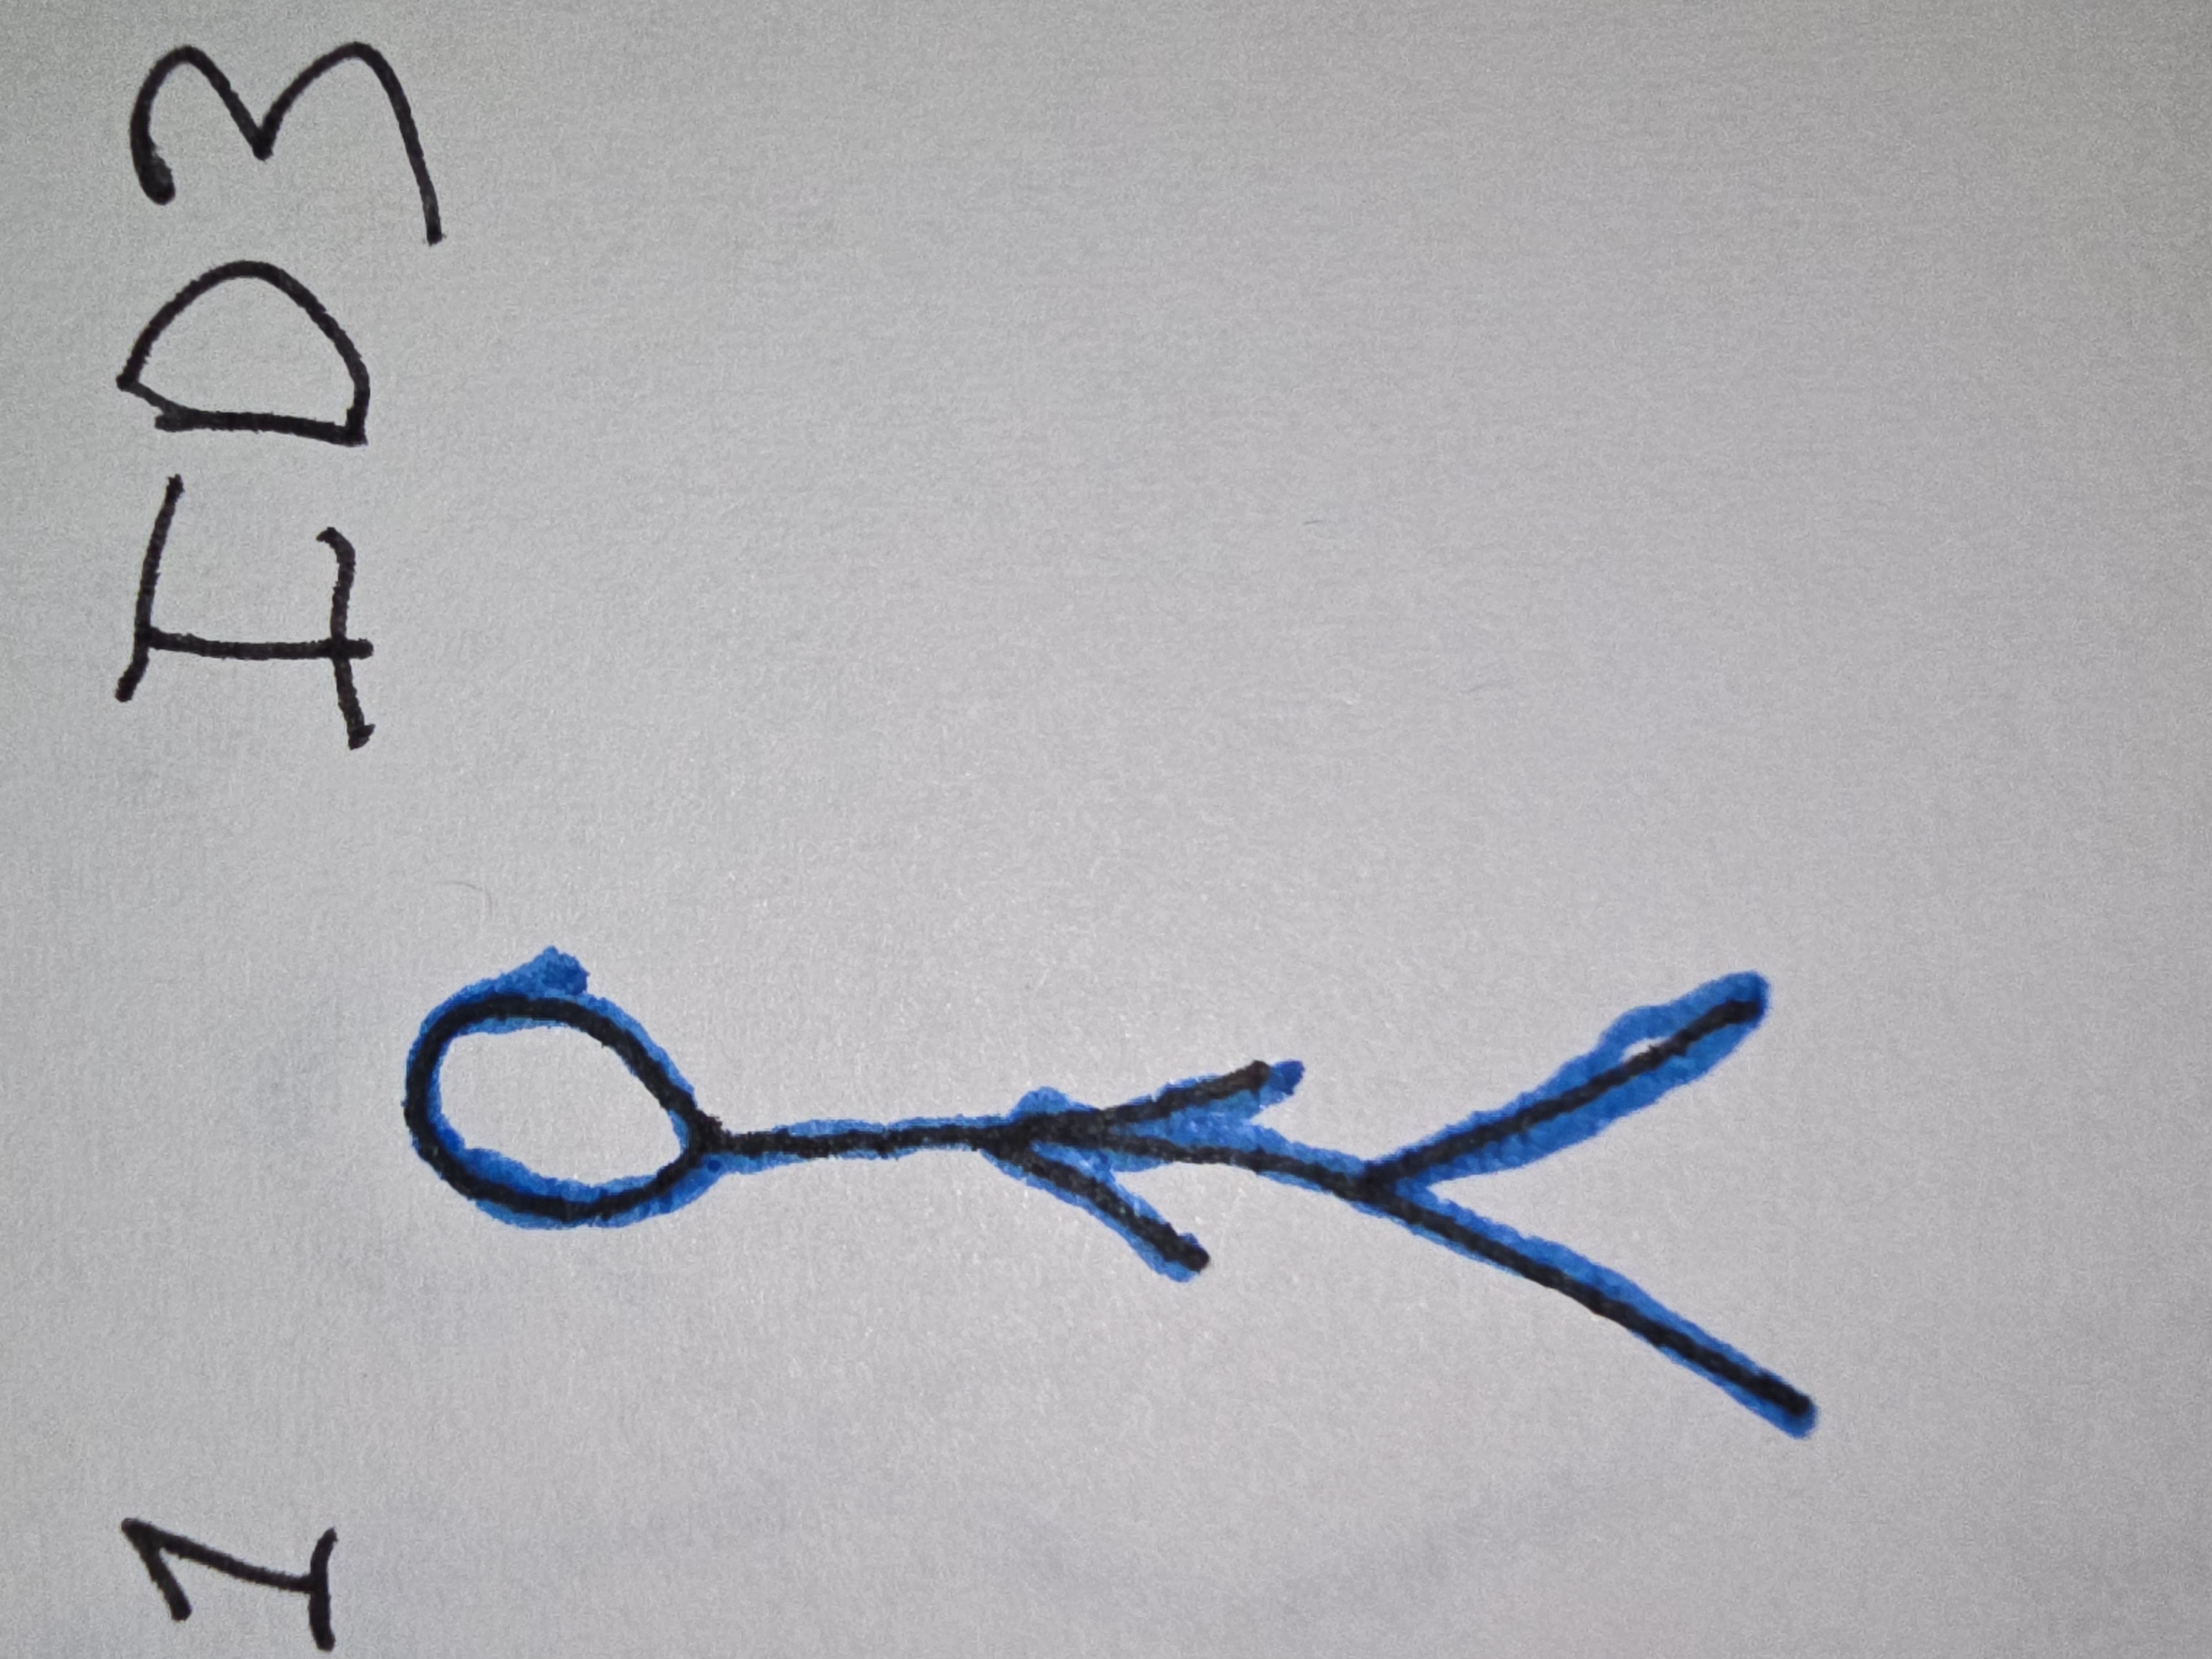 1 ID3